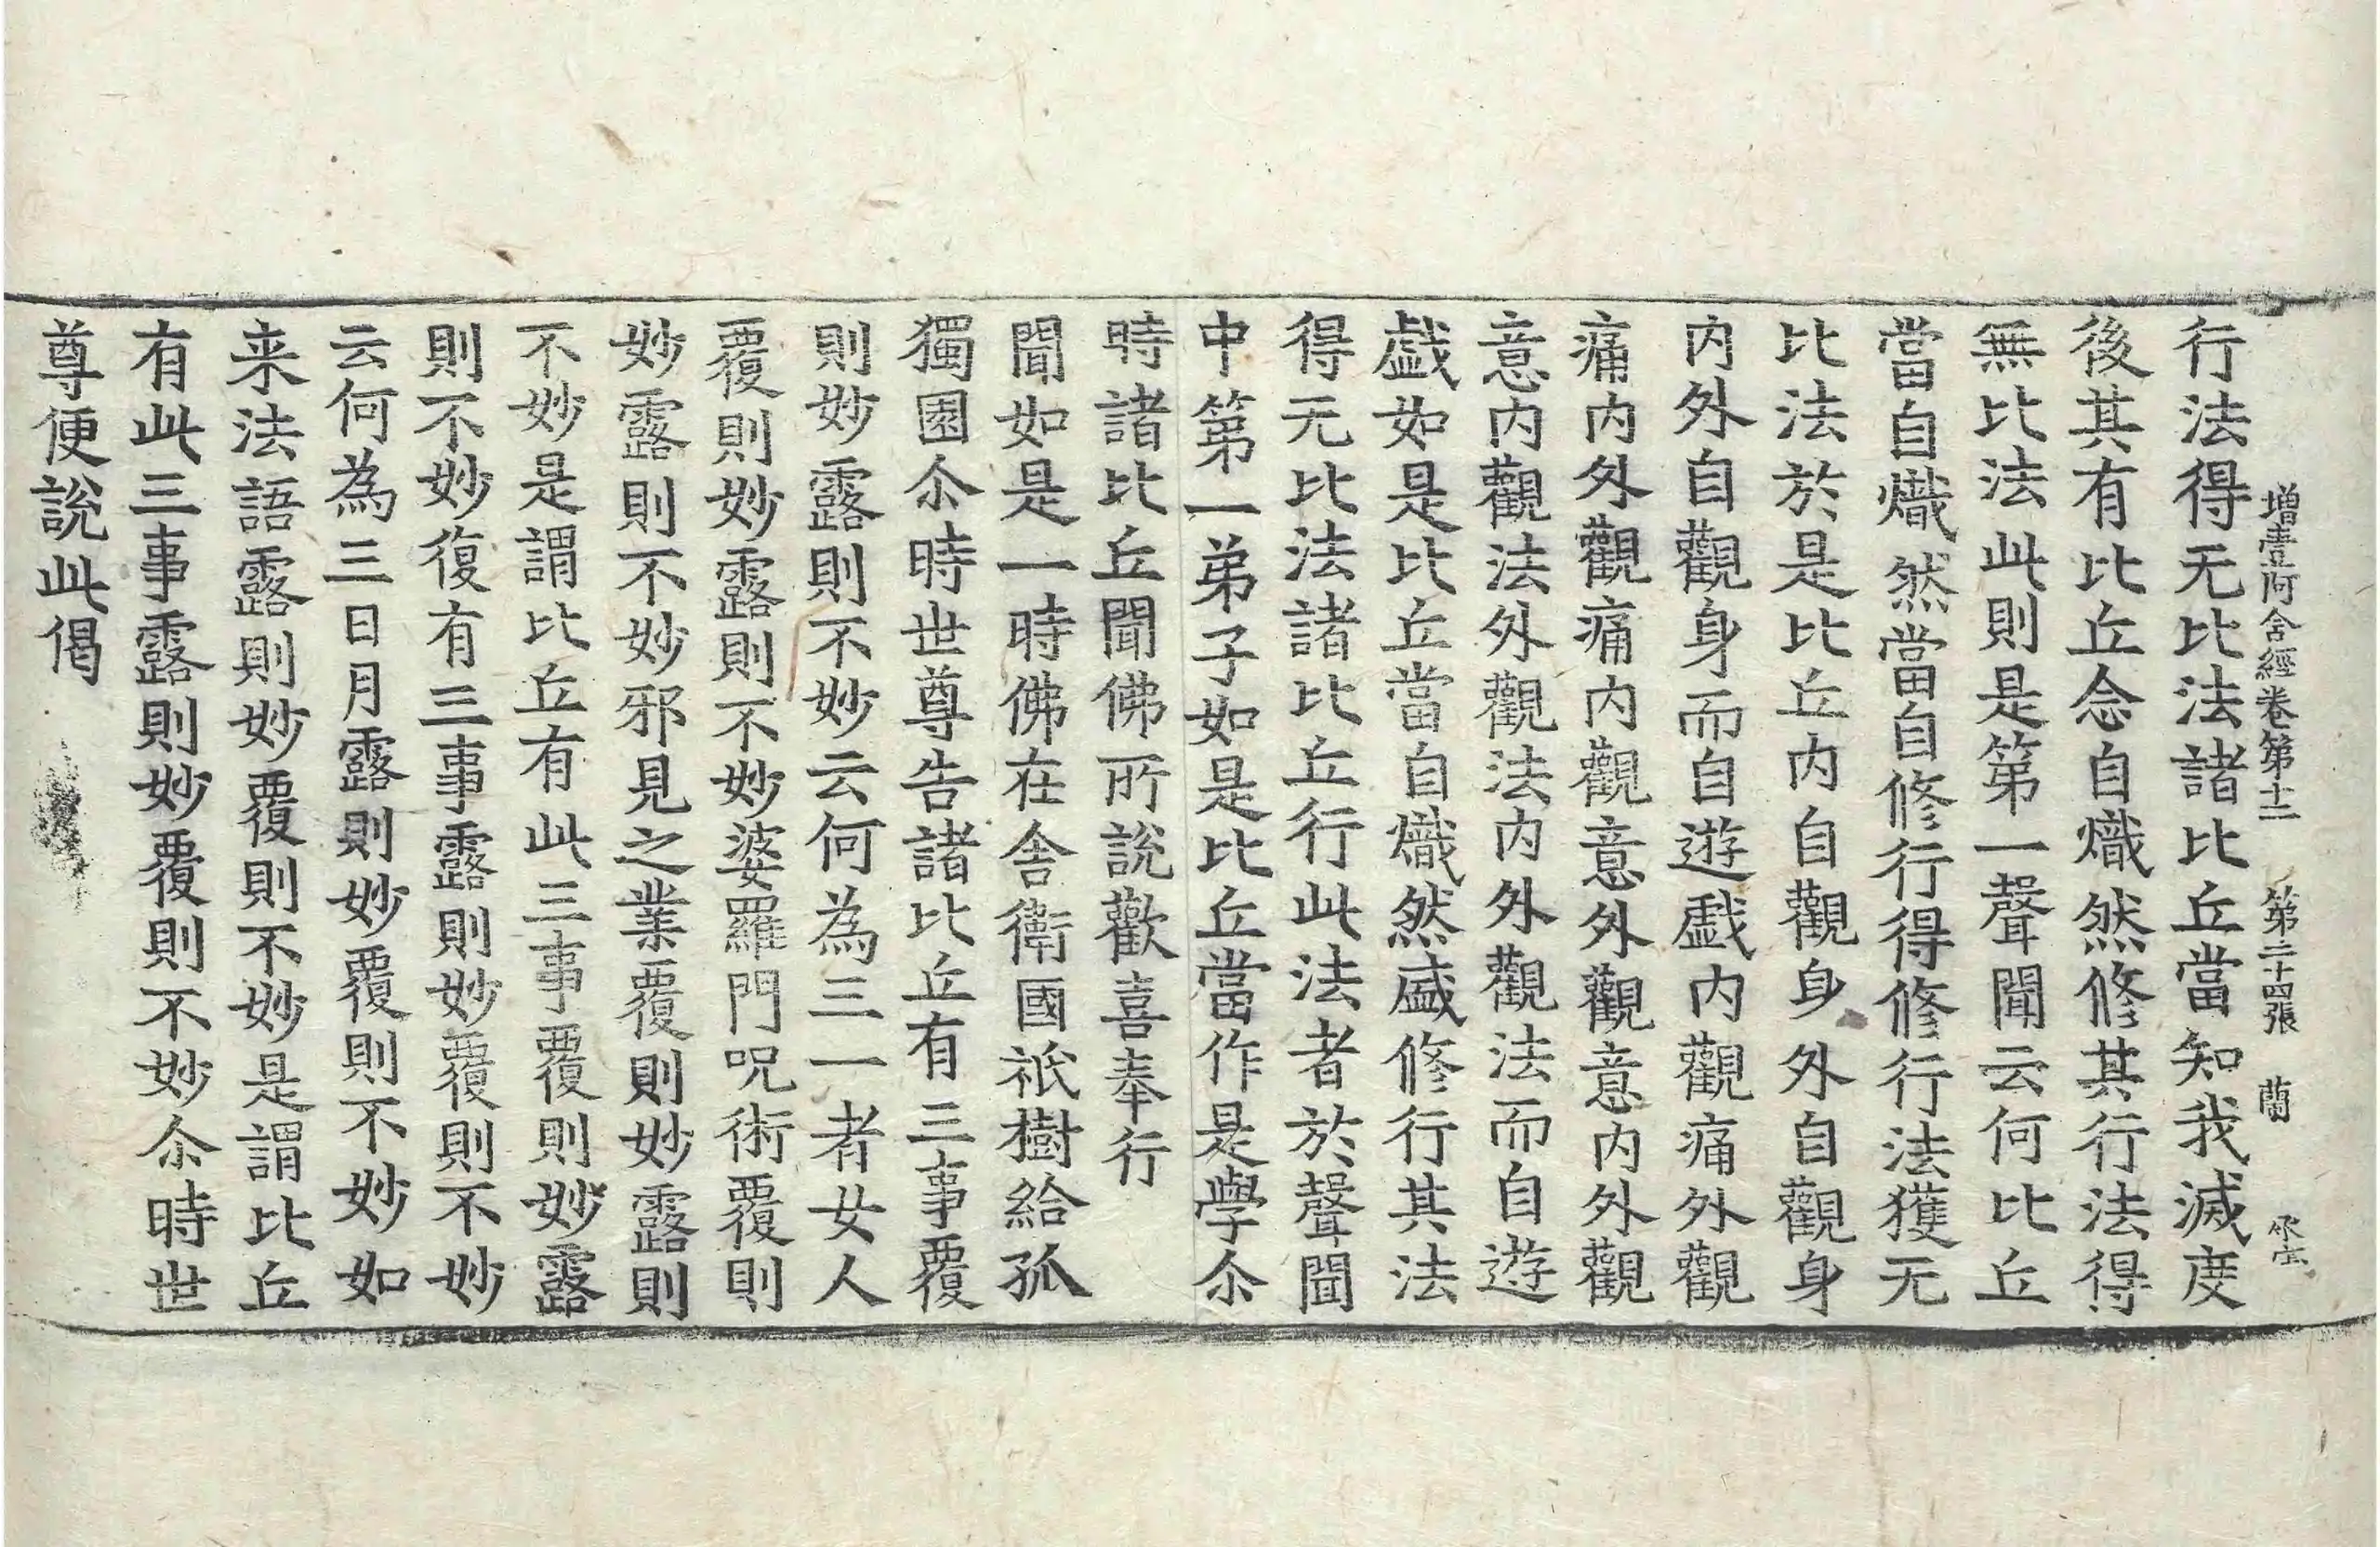 增壹阿含經卷第十二 第二十四張 蘭
行法得无比法諸比丘當知我滅度
後其有比丘念自熾然修其行法得
無比法此則是第一聲聞云何比丘
當自熾然當自修行得修行法獲无
比法於是比丘內自觀身外自觀身
內外自觀身而自遊戲內觀痛外觀
痛內外觀痛內觀意外觀意內外觀
意內觀法外觀法內外觀法而自遊
戲如是比丘當自熾然盛修行其法
得无比法諸比丘行此法者於聲聞
中第一弟子如是比丘當作是學尒
時諸比丘聞佛所說歡喜奉行
聞如是一時佛在舍衛國祇樹給孤
獨園尒時世尊告諸比丘有三事覆
則妙露則不妙云何為三一者女人
覆則妙露則不妙婆羅門呪術覆則
妙露則不妙邪見之業覆則妙露則
不妙是謂比丘有此三事覆則妙露
則不妙復有三事露則妙覆則不妙
云何為三日月露則妙覆則不妙如
来法語露則妙覆則不妙是謂比丘
有此三事露則妙覆則不妙尒時世
尊便說此偈